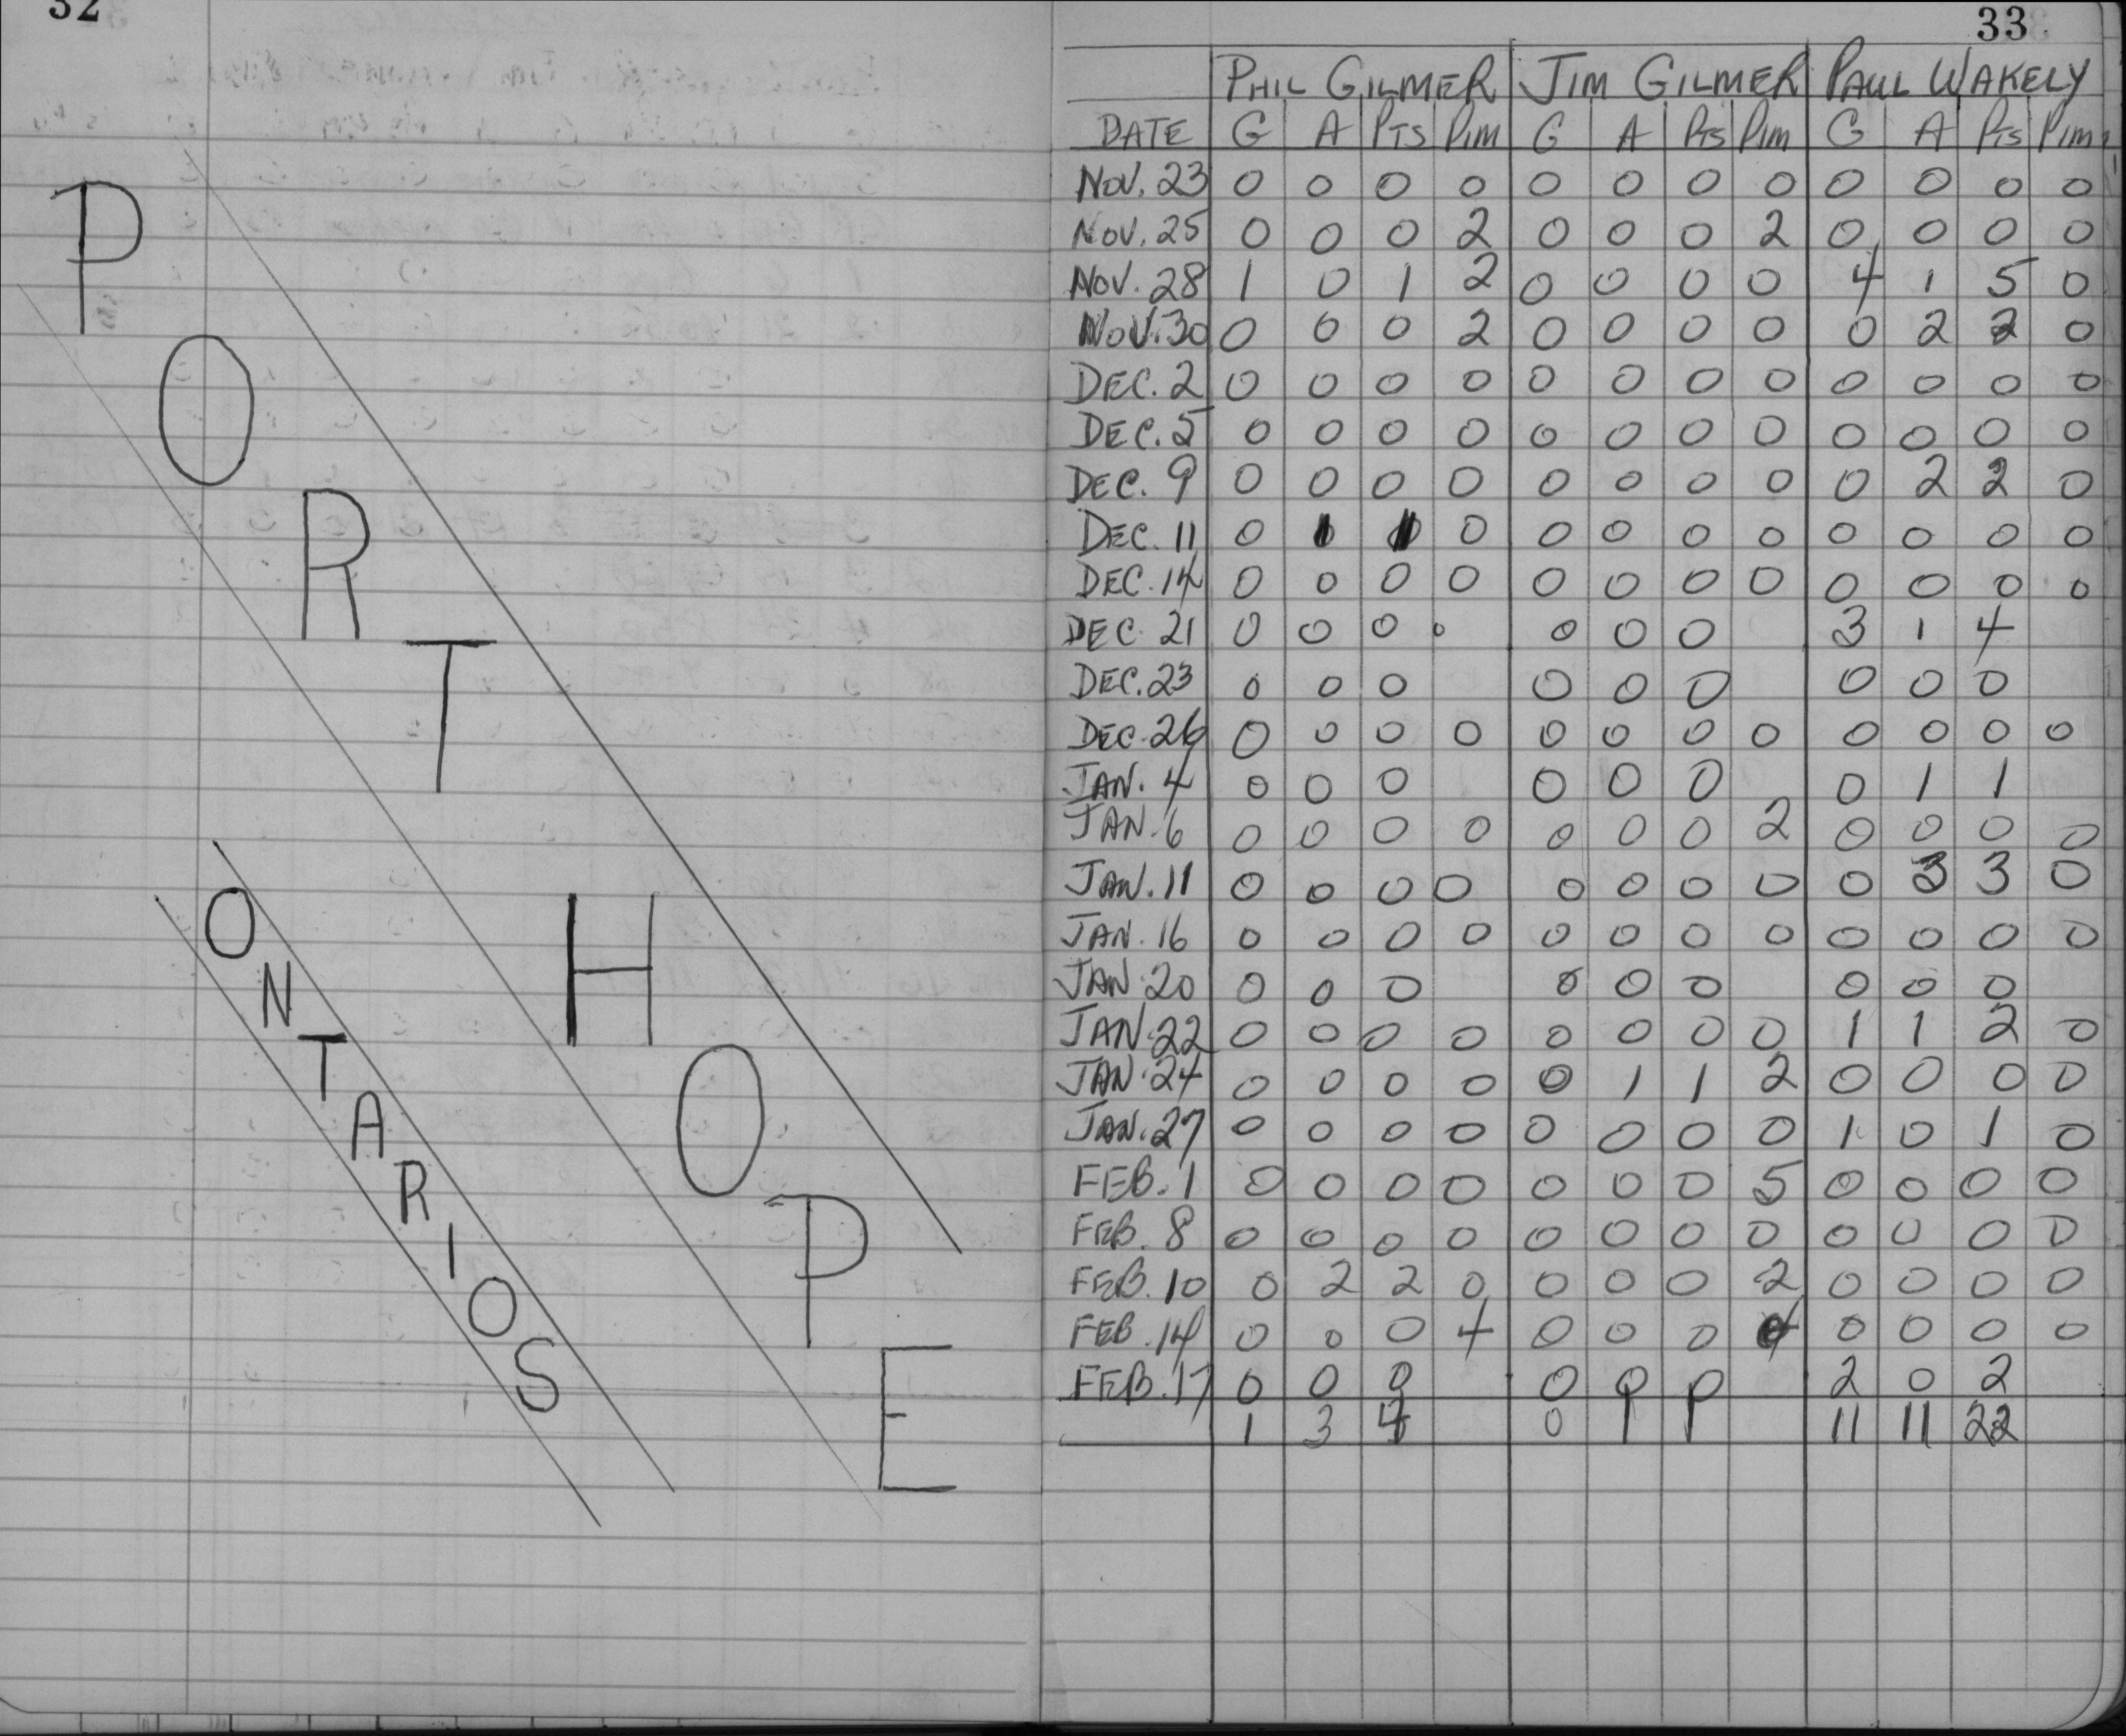 32
P
O
R
T
H
O
P
E
O
N
T
A
R
I
O
S
33
PHIL GILMER JIM GILMER PAUL WAKELY
DATE G A PTS PIM G A PTS PIM G A PTS PIM
NOV. 23 0 0 0 0 0 0 0 0 0 0 0 0
NOV. 25 0 0 0 2 0 0 0 2 0 0 0 0
NOV. 28 1 0 1 2 0 0 0 0 4 1 5 0
NOV. 30 0 0 0 2 0 0 0 0 0 2 2 0
DEC. 2 0 0 0 0 0 0 0 0 0 0 0 0
DEC. 5 0 0 0 0 0 0 0 0 0 0 0 0
DEC. 9 0 0 0 0 0 0 0 0 0 2 2 0
DEC. 11 0 1 1 0 0 0 0 0 0 0 0 0
DEC. 14 0 0 0 0 0 0 0 0 0 0 0 0
DEC. 21 0 0 0 0 0 0 0 3 1 4
DEC. 23 0 0 0 0 0 0 0 0 0
DEC. 26 0 0 0 0 0 0 0 0 0 0 0 0
JAN. 4 0 0 0 0 0 0 0 1 1
JAN. 6 0 0 0 0 0 0 0 2 0 0 0 0
JAN. 11 0 0 0 0 0 0 0 0 0 3 3 0
JAN. 16 0 0 0 0 0 0 0 0 0 0 0 0
JAN. 20 0 0 0 0 0 0 0 0 0
JAN. 22 0 0 0 0 0 0 0 0 1 1 2 0
JAN. 24 0 0 0 0 0 1 1 2 0 0 0 0
JAN. 27 0 0 0 0 0 0 0 0 1 0 1 0
FEB. 1 0 0 0 0 0 0 0 5 0 0 0 0
FEB. 8 0 0 0 0 0 0 0 0 0 0 0 0
FEB. 10 0 2 2 0 0 0 0 2 0 0 0 0
FEB. 14 0 0 0 4 0 0 0 4 0 0 0 0
FEB. 17 0 0 0 0 0 0 2 0 2
1 3 4 0 1 1 11 11 22